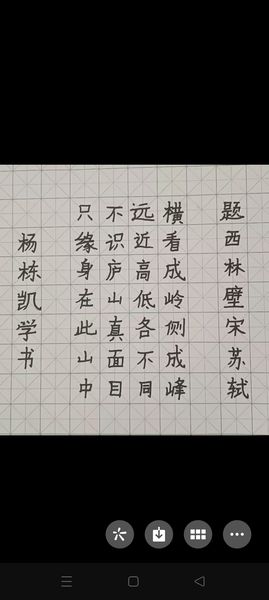 题西林壁宋苏轼
横看成岭侧成峰
远近高低各不同
不识庐山真面目
只缘身在此山中
杨栋凯学书